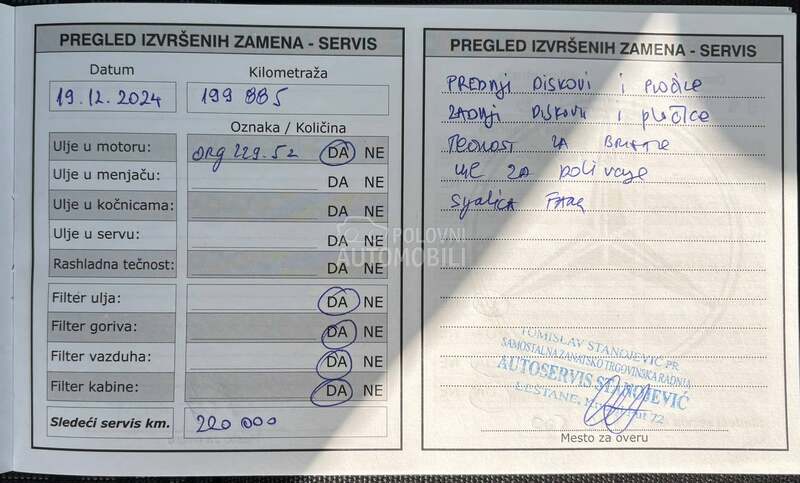 PREGLED IZVRŠENIH ZAMENA - SERVIS
Datum Kilometraža
19.12.2024 199 885
Oznaka / Količina
Ulje u motoru: ORG 229.52 DA NE
Ulje u menjaču: DA NE
Ulje u kočnicama: DA NE
Ulje u servu: DA NE
Rashladna tečnost: DA NE
Filter ulja: DA NE
Filter goriva: DA NE
Filter vazduha: DA NE
Filter kabine: DA NE
Sledeći servis km. 220 000
POLOVNI
AUTOMOBILI
PREGLED IZVRŠENIH ZAMENA - SERVIS
PREDNJI DISKOVI i PLOČICE
ZADNJI DISKOVI i pločice
TEČNOST ZA
ZA
Sijalica FARA
TOMISLAV STANOJEVIĆ PR
SAMOSTALNA ZANATSKO TRGOVINSKA RADNJA
AUTOSERVIS STANOJEVIĆ
LEŠTANE, 72
Mesto za overu